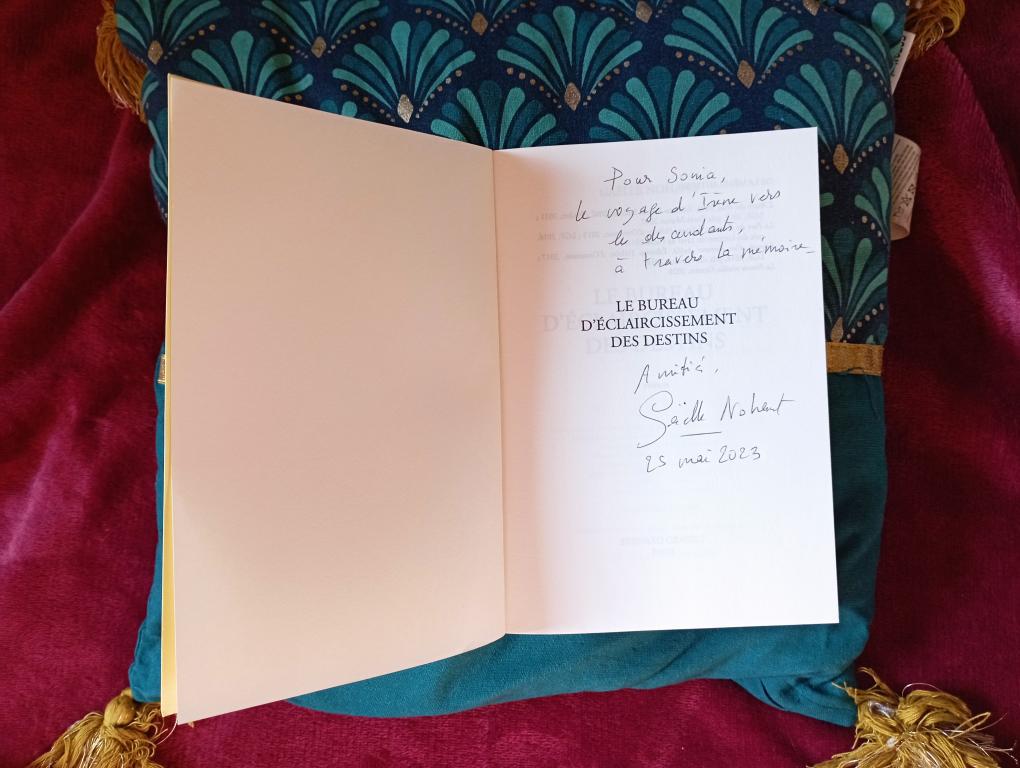 Pour Sonia,
le voyage d'Irène vers
les descendants,
à travers la mémoire
LE BUREAU
D'ÉCLAIRCISSEMENT
DES DESTINS
Amitié,
Gaëlle Nohant
25 mai 2023